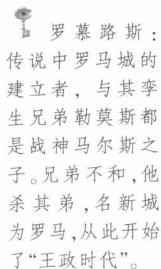 罗慕路斯：
传说中罗马城的
建立者，与其孪
生兄弟勒莫斯都
是战神马尔斯之
子。兄弟不和，他
杀其弟，名新城
为罗马，从此开始
了“王政时代”。